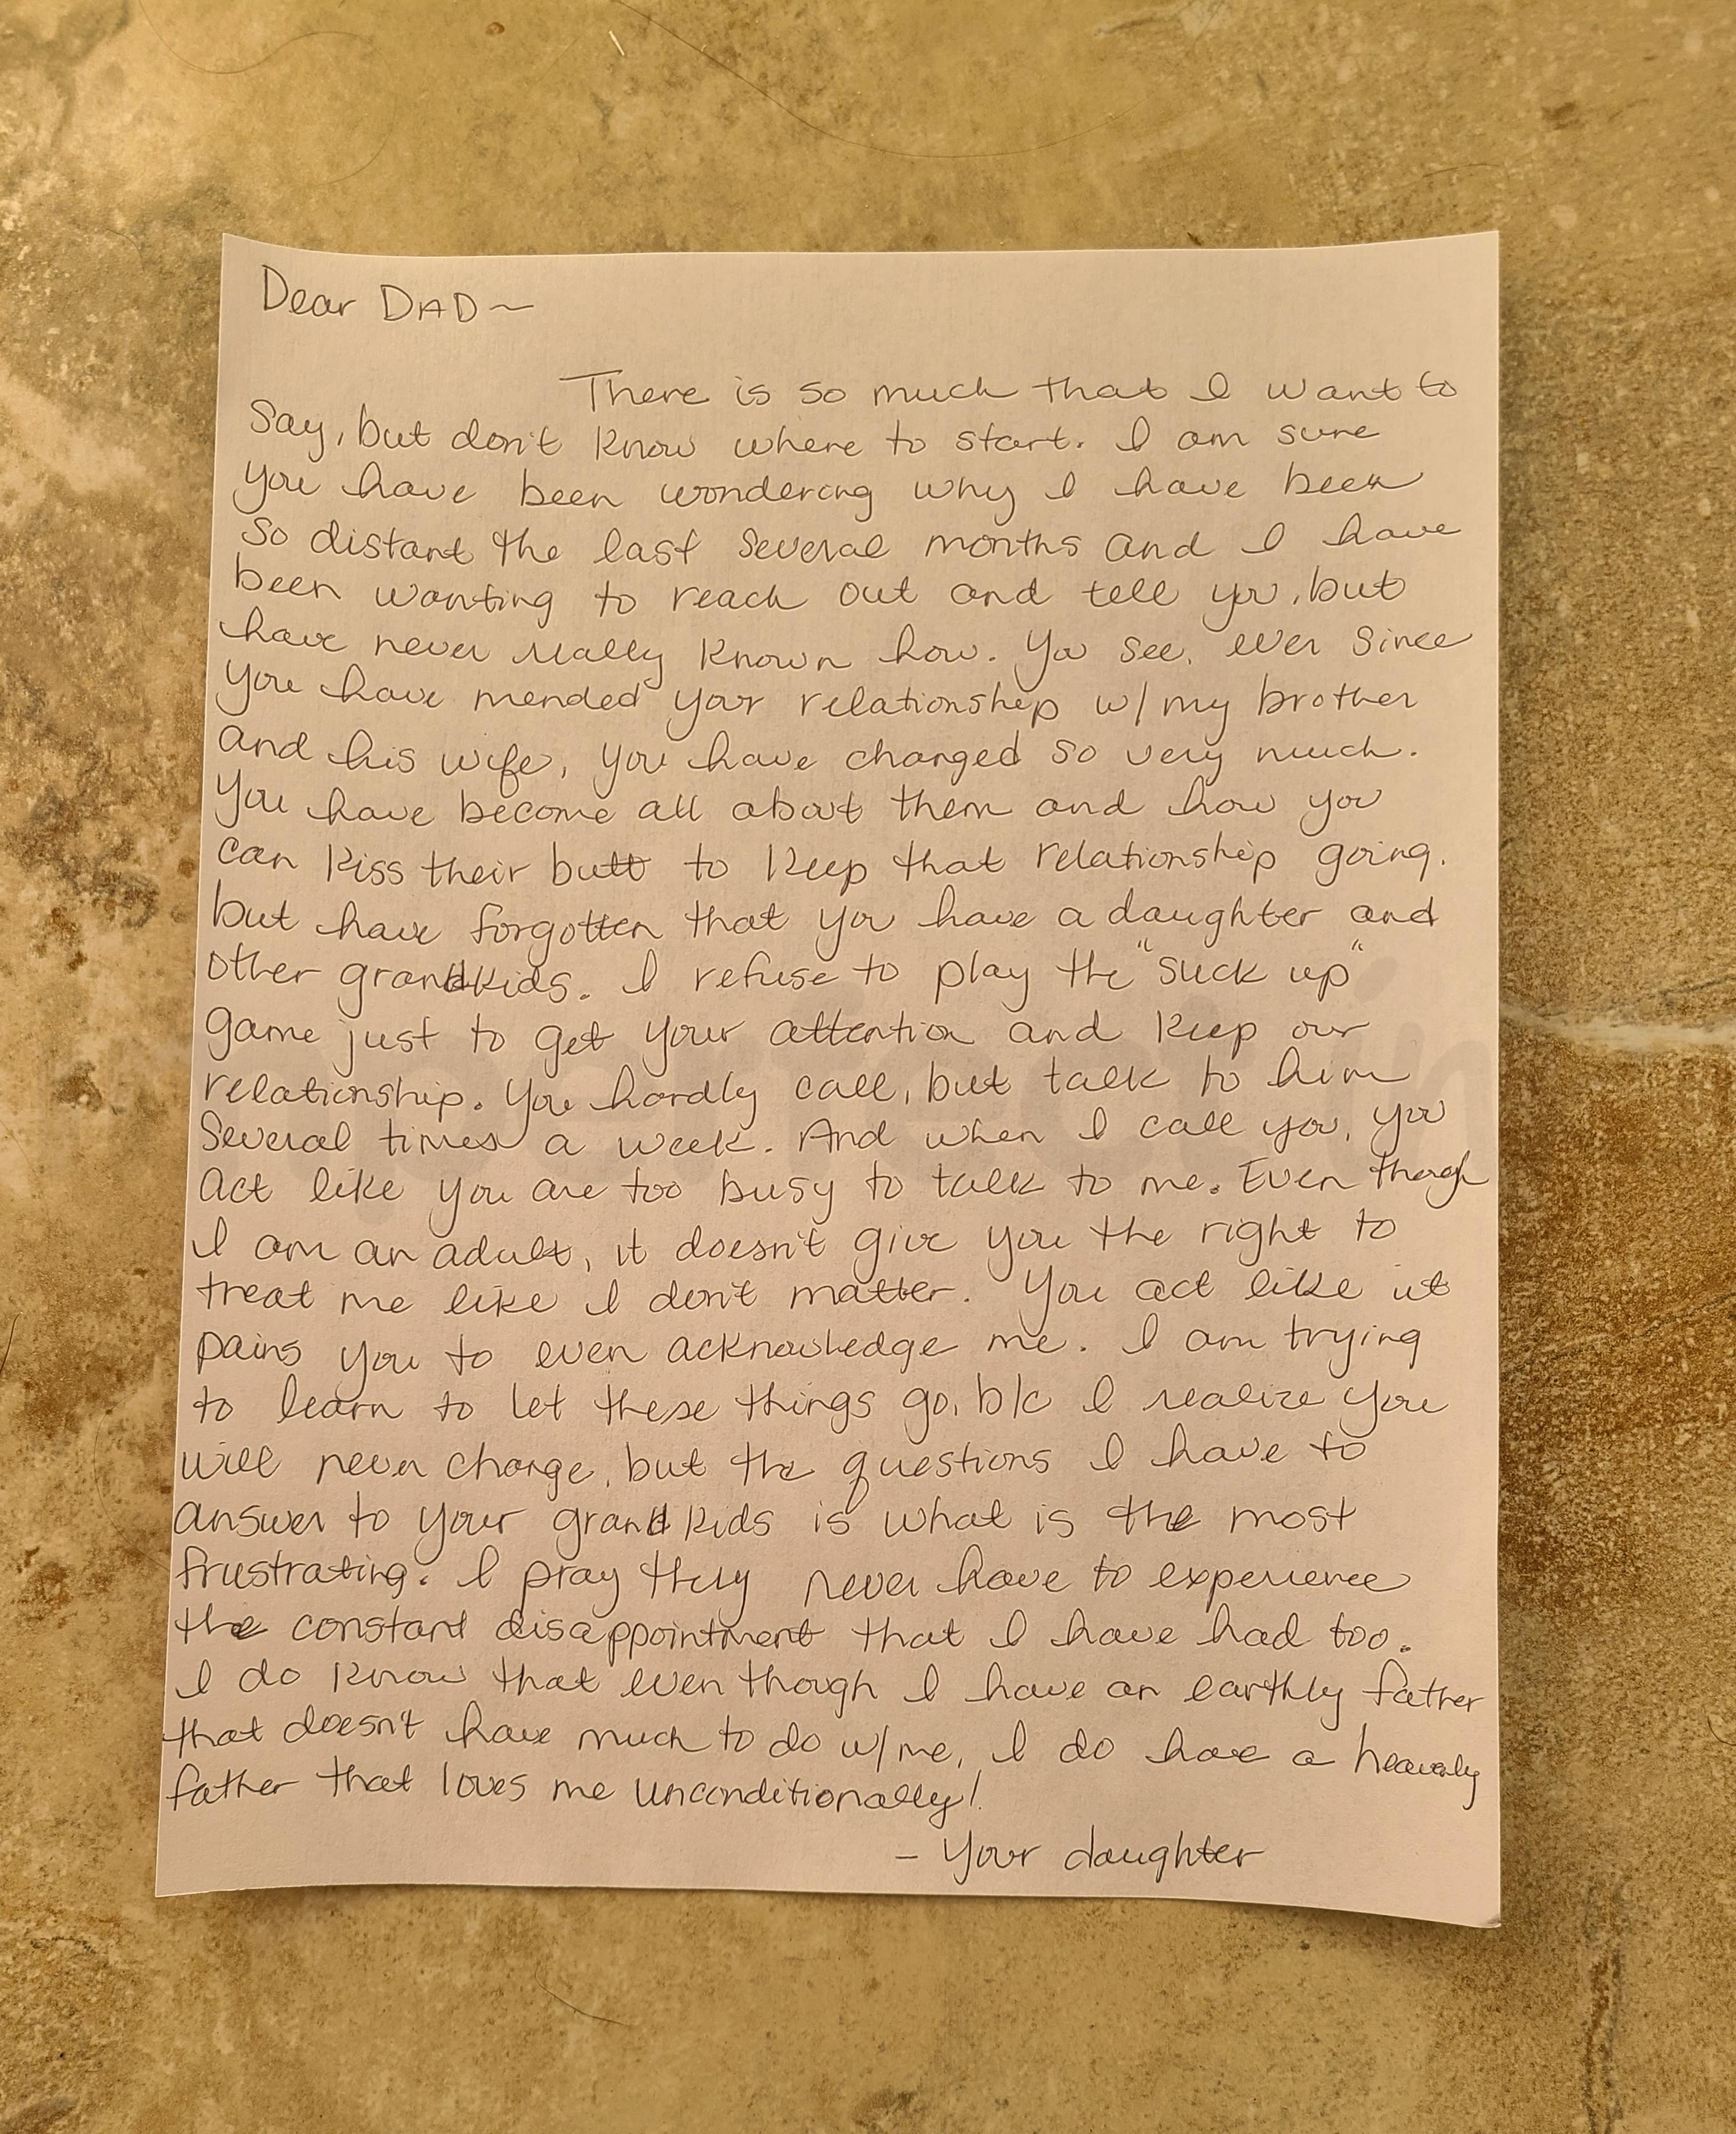 Dear DAD~
There is so much that I want to
say, but don't know where to start. I am sure
you have been wondering why I have been
so distant the last several months and I have
been wanting to reach out and tell you, but
have never really known how. You see, ever since
you have mended your relationship w/ my brother
and his wife, you have changed so very much.
You have become all about them and how you
can kiss their butt to keep that relationship going.
but have forgotten that you have a daughter and
other grandkids. I refuse to play the "suck up"
game just to get your attention and keep our
relationship. You hardly call, but talk to him
several times a week. And when I call you, you
act like you are too busy to talk to me. Even though
I am an adult, it doesn't give you the right to
treat me like I don't matter. You act like it
pains you to even acknowledge me. I am trying
to learn to let these things go, b/c I realize you
will never change, but the questions I have to
answer to your grandkids is what is the most
frustrating. I pray they never have to experience
the constant disappointment that I have had too.
I do know that even though I have an earthly father
that doesn't have much to do w/ me, I do have a heavenly
father that loves me unconditionally!
- Your daughter